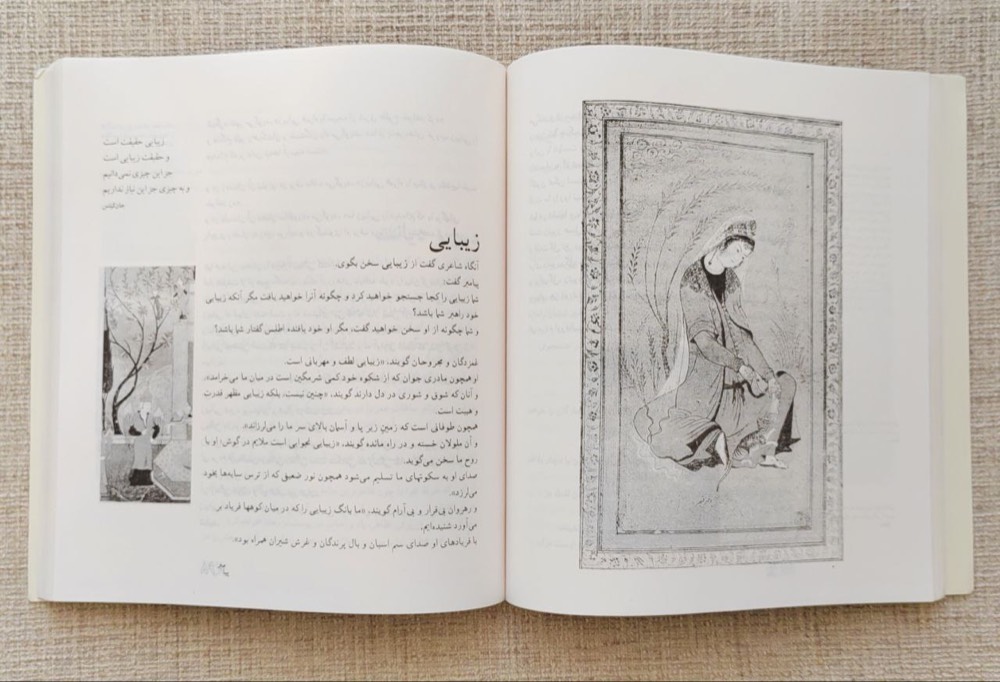 زیبایی حقیقت است
و حقیقت زیبایی است
جز این چیزی نمی‌دانیم
و به چیزی جز این نیاز نداریم
جان کیتس
زیبایی
آنگاه شاعری گفت از زیبایی سخن بگوی.
پیامبر گفت:
شما زیبایی را کجا جستجو خواهید کرد و چگونه آنرا خواهید یافت مگر آنکه زیبایی
خود راهبر شما باشد؟
و شما چگونه از او سخن خواهید گفت، مگر او خود بافنده اطلس گفتار شما باشد؟
غمزدگان و مجروحان گویند، «زیبایی لطف و مهربانی است.
او همچون مادری جوان که از شکوه خود کمی شرمگین است در میان ما می‌خرامد».
و آنان که شوق و شوری در دل دارند گویند، «چنین نیست، بلکه زیبایی مظهر قدرت
و هیبت است.
همچون طوفانی است که زمین زیر پا و آسمان بالای سر ما را می‌لرزاند».
و آن ملولان خسته و در راه مانده گویند، «زیبایی نجوایی است ملایم در گوش؛ او با
روح ما سخن می‌گوید.
صدای او به سکوتهای ما تسلیم می‌شود همچون نور ضعیفی که از ترس سایه‌ها بخود
می‌لرزد».
و رهروان بی‌قرار و بی‌آرام گویند، «ما بانگ زیبایی را که در میان کوهها فریاد بر
می‌آورد شنیده‌ایم.
با فریادهای او صدای سم اسبان و بال پرندگان و غرش شیران همراه بود».